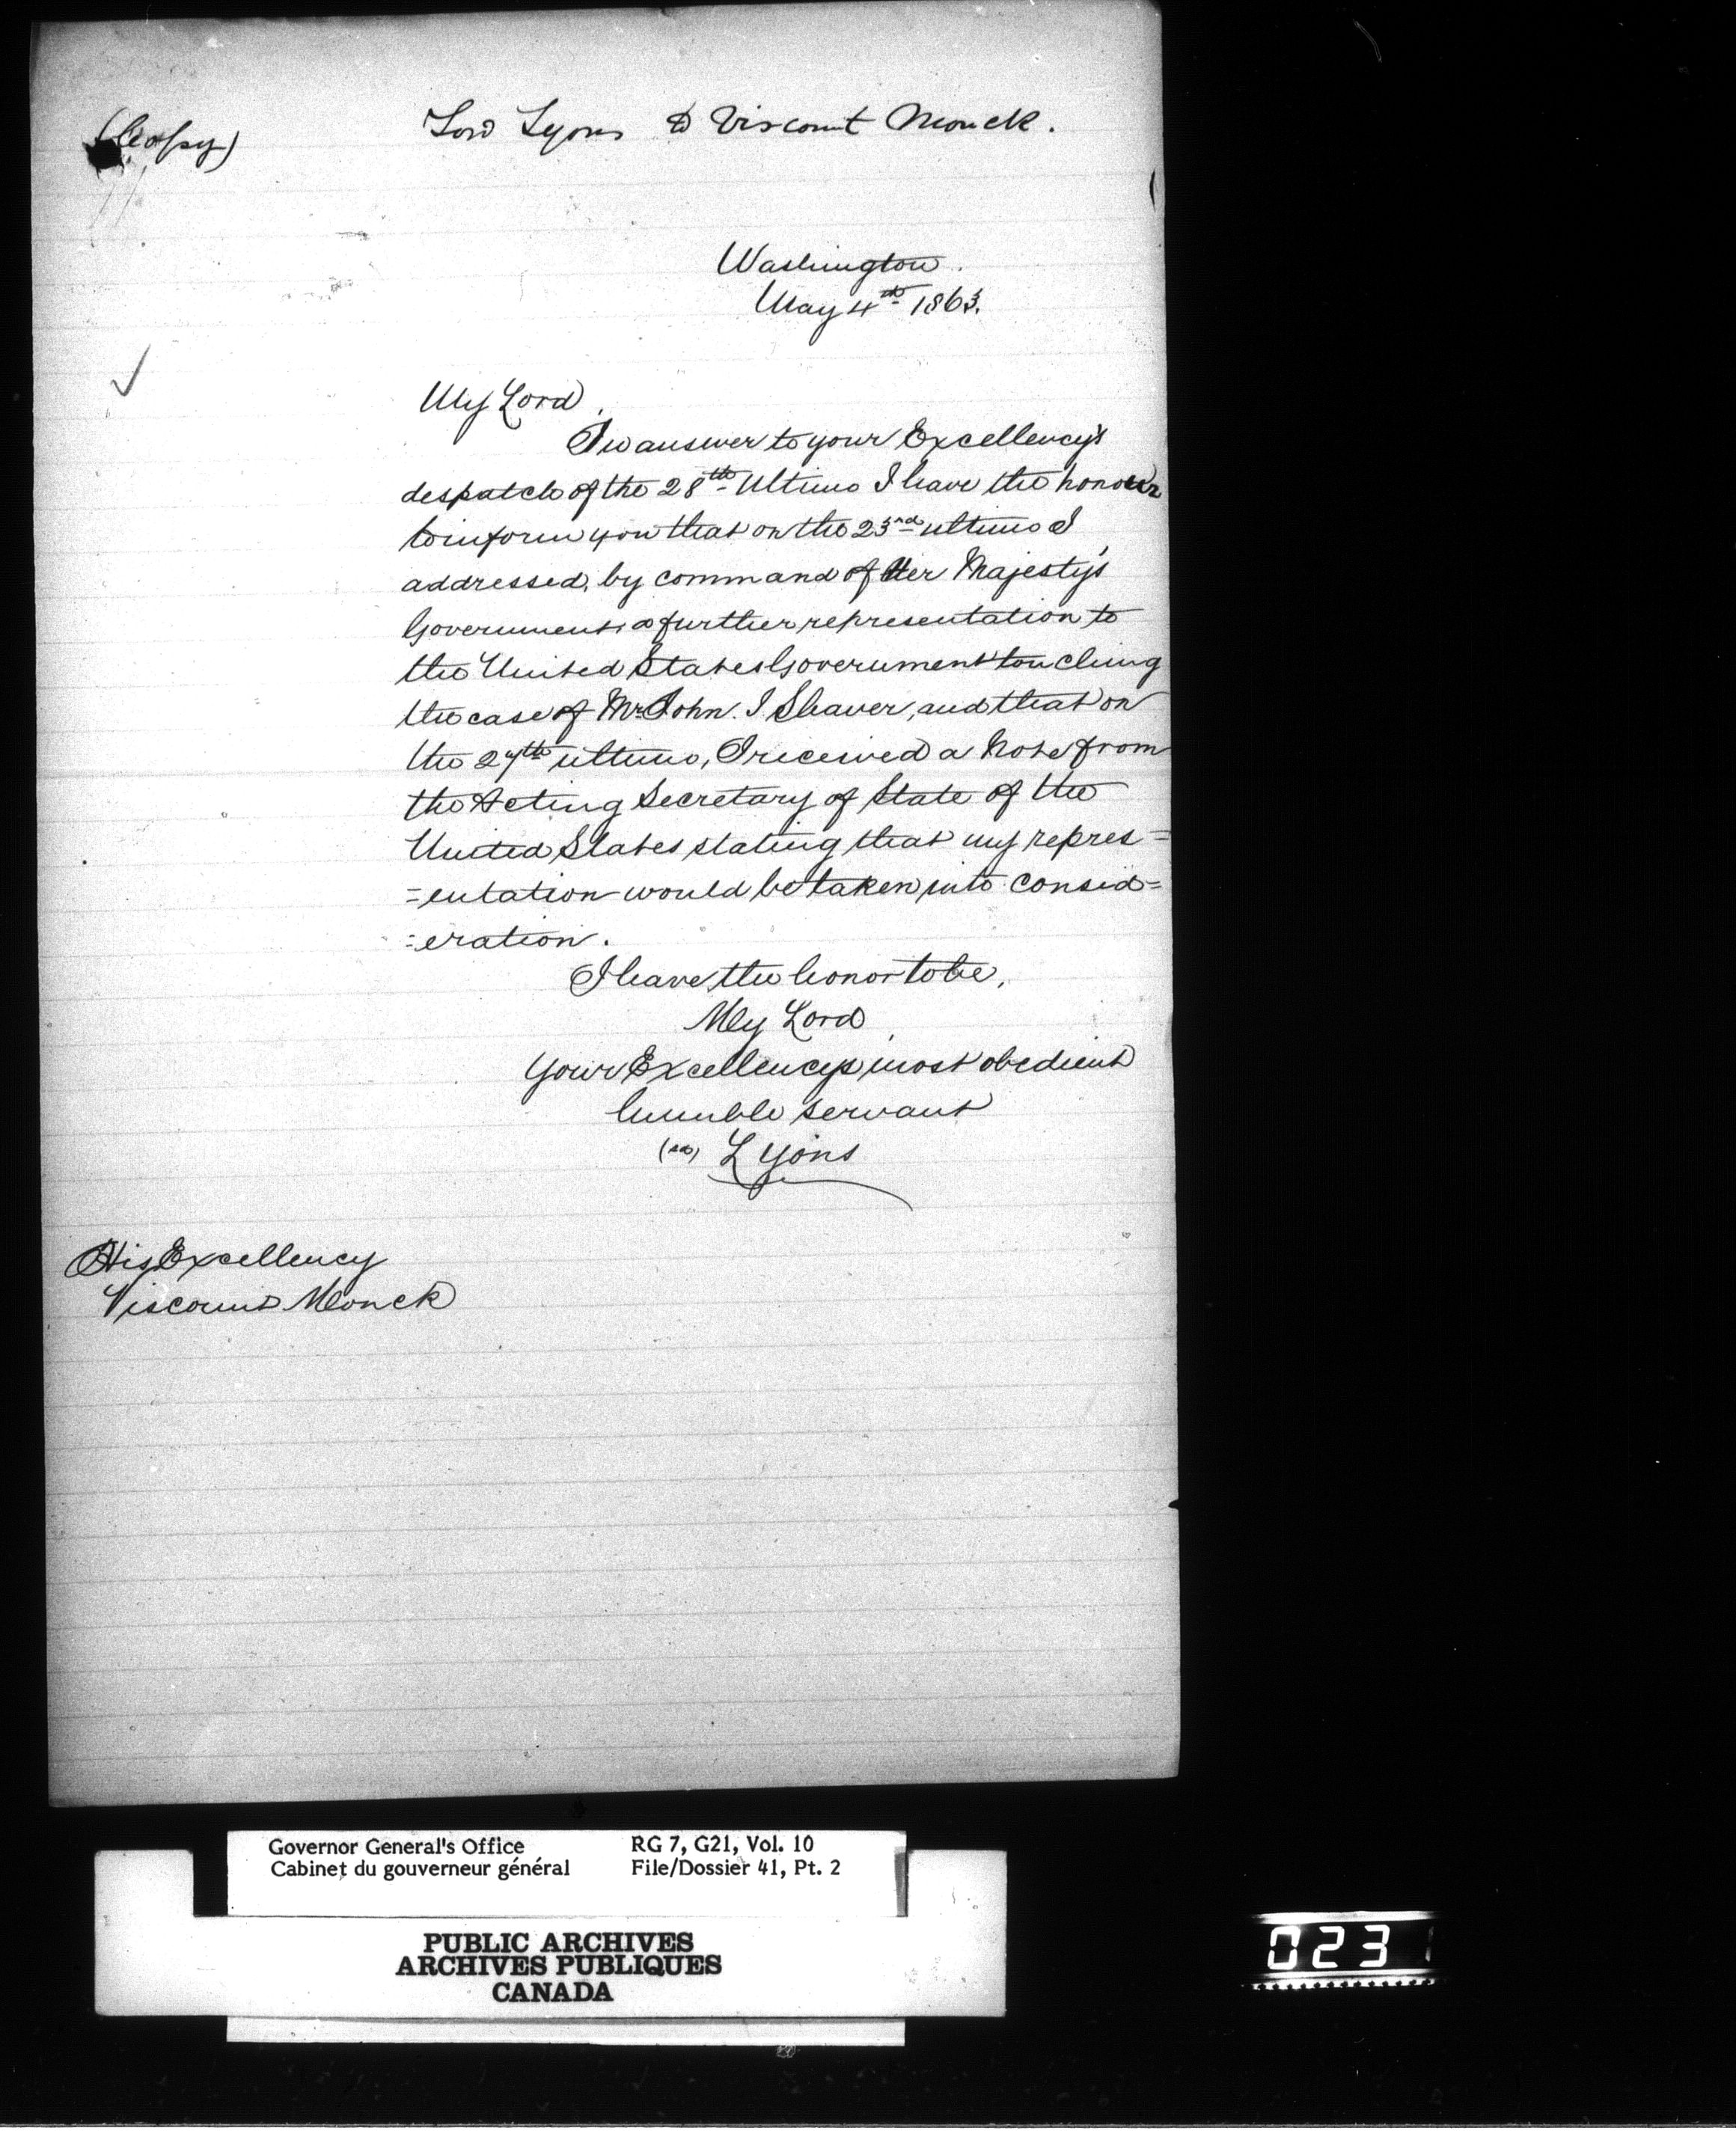 (Copy)
Lord Lyons to Viscount Monck.
Washington.
May 4th 1863.
My Lord,
In answer to your Excellency's
despatch of the 28th Ultimo I have the honour
to inform you that on the 23rd ultimo I
addressed, by command of Her Majesty's
Government, a further representation to
the United States Government touching
the case of Mr John. I Shaver, and that on
the 27th ultimo, I received a Note from
the Acting Secretary of State of the
United States stating that my repres=
=entation would be taken into consid=
=eration.
I have the honor to be,
My Lord,
Your Excellency's most obedient
humble servant
(sd) Lyons
His Excellency
Viscount Monck
Governor General's Office RG 7, G21, Vol. 10
Cabinet du gouverneur général File/Dossier 41, Pt. 2
PUBLIC ARCHIVES
ARCHIVES PUBLIQUES
CANADA
023